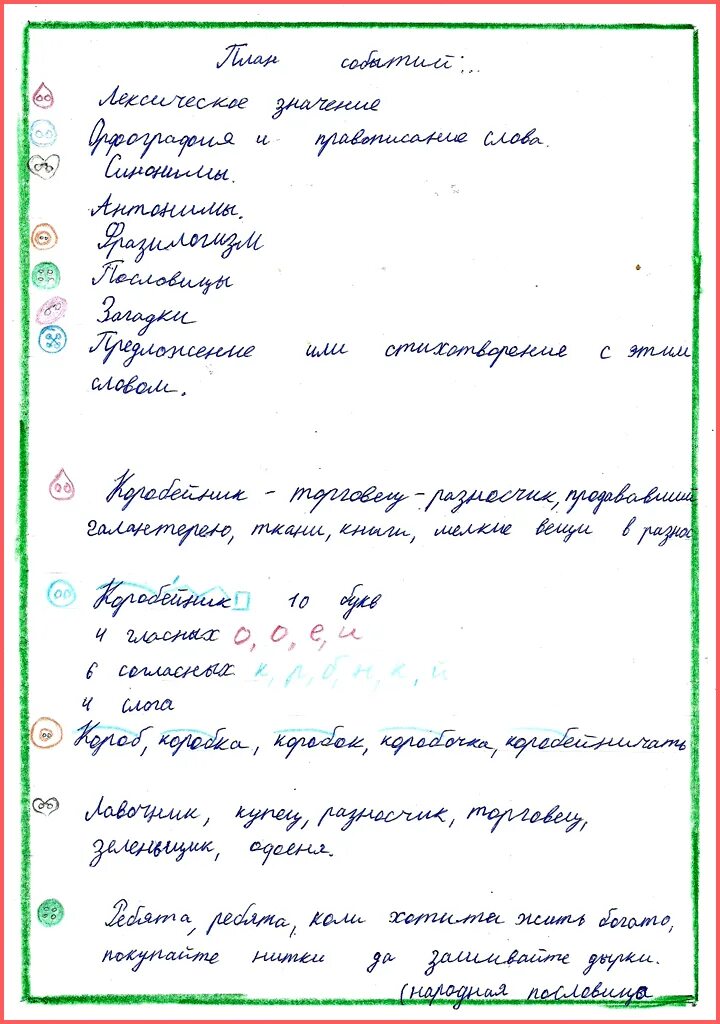 План событий...
Лексическое значение
Орфография и правописание слова.
Синонимы.
Антонимы.
Фразилогизм
Пословицы
Загадки
Предложение или стихотворение с этим
словом.
Коробейник - торговец - разносчик, продававший
галантерею, ткани, книги, мелкие вещи в разнос
Коробейник 10 букв
4 гласных о, о, е, и
6 согласных к, р, б, н, к, й
4 слога
Короб, коробка, коробок, коробочка, коробейничать
Лавочник, купец, разносчик, торговец,
зеленьщик, офеня.
Ребята, ребята, коли хотите жить богато,
покупайте нитки да зашивайте дырки.
(народная пословица